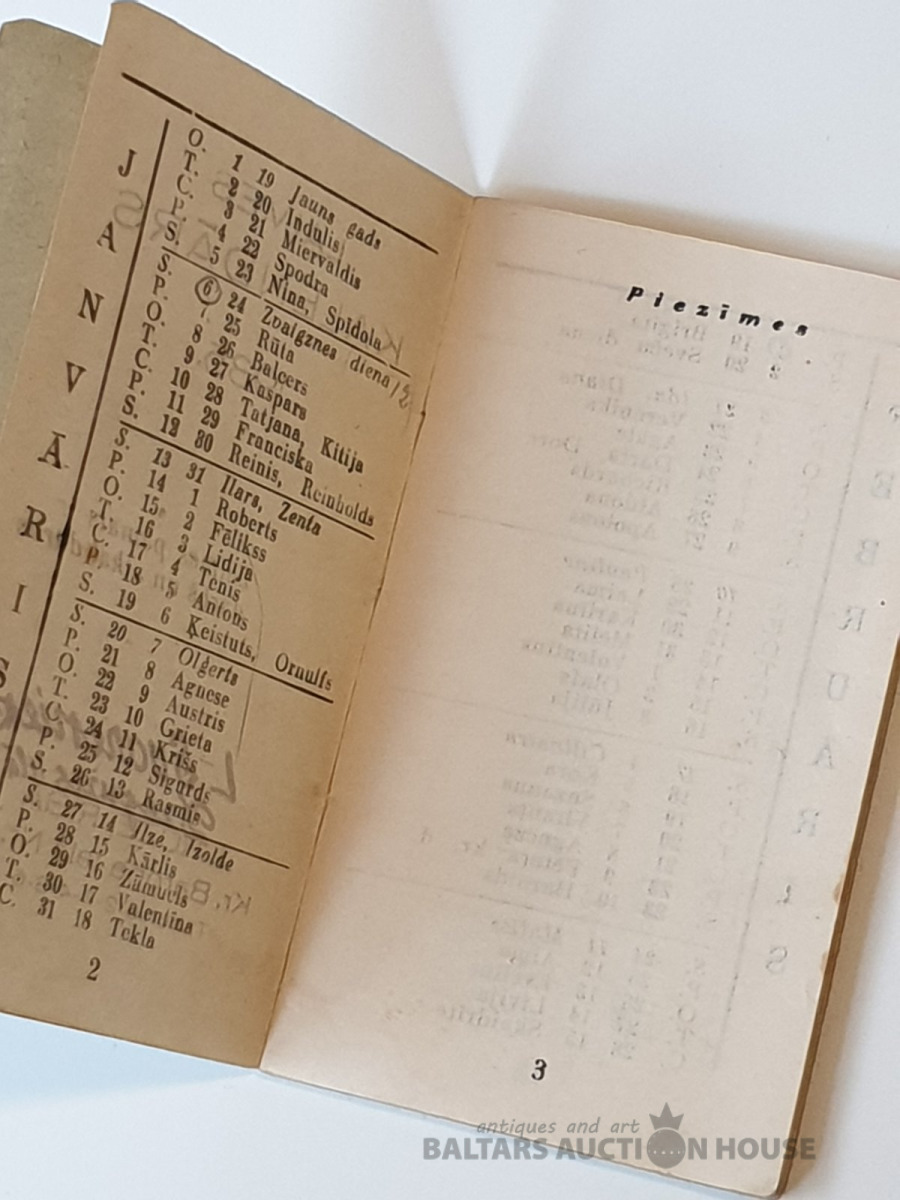 JANVĀRIS
O. 1 19 Jauns gads
T. 2 20 Indulis
C. 3 21 Miervaldis
P. 4 22 Spodra
S. 5 23 Nina, Spīdola
S. 6 24 Zvaigznes diena
P. 7 25 Rūta
O. 8 26 Balcers
T. 9 27 Kaspars
C. 10 28 Tatjana, Kitija
P. 11 29 Franciska
S. 12 30 Reinis, Reinholds
S. 13 31 Ilars, Zenta
P. 14 1 Roberts
O. 15 2 Fēlikss
T. 16 3 Lidija
C. 17 4 Tenis
P. 18 5 Antons
S. 19 6 Ķeistuts, Ornulfs
S. 20 7 Oļģerts
P. 21 8 Agnese
O. 22 9 Austris
T. 23 10 Grieta
C. 24 11 Krišs
P. 25 12 Sigurds
S. 26 13 Rasmis
S. 27 14 Ilze, Izolde
P. 28 15 Kārlis
O. 29 16 Zāmuels
T. 30 17 Valentīna
C. 31 18 Tekla
2
Piezīmes
3
antiques and art
BALTARS AUCTION HOUSE